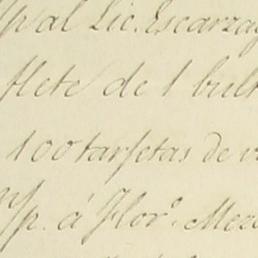 al Lic. Escarza
flete de 1 bult
100 tarjetas de v
p. á Flor.º Meza